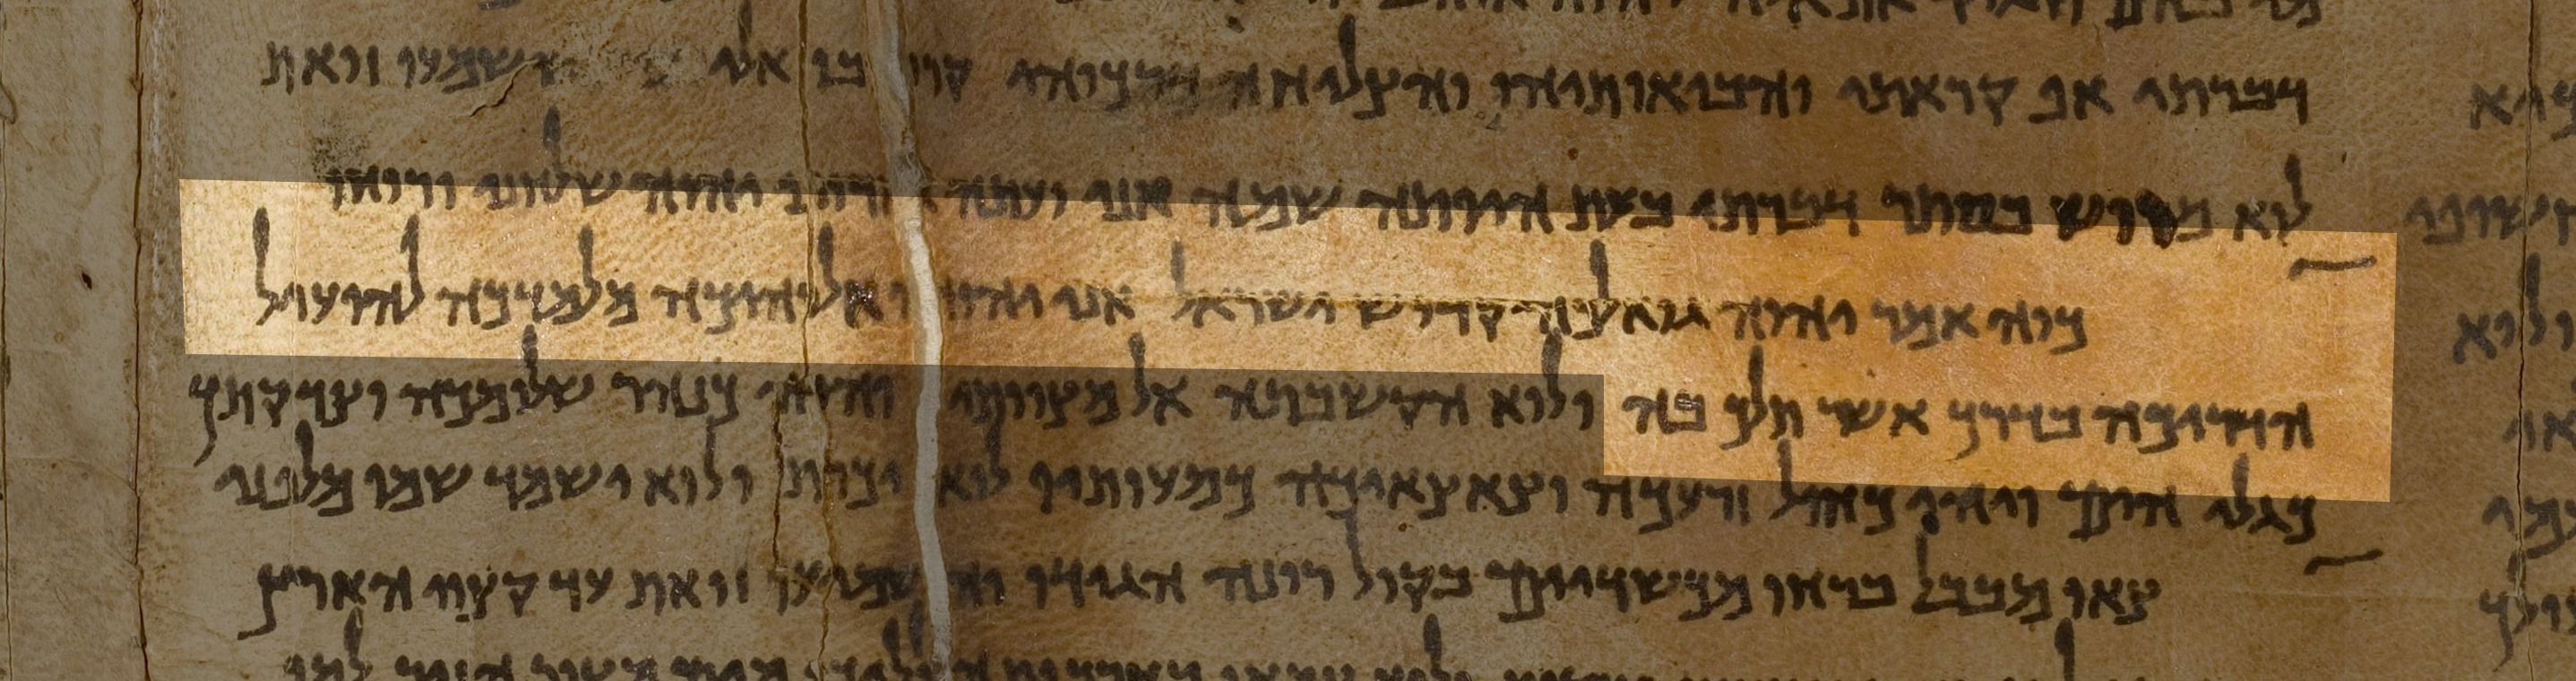 דברתי אף קראתי והביאותיהו והצליחה דרכיהו קרבו אלי ושמעו זואת
לוא מרוש בסתר דברתי בעת היותה שמה אני ועתה אדוני יהוה שלחני ורוחו
כוה אמר יהוה גואלכה קדוש ישראל אני יהוה אלוהיכה מלמדכה להועיל
הדריכה בדרך אשר תלך בה ולוא הקשבתה אל מצוותי והיה כנהר שלומכה וצדקתך
כגלי הים ויהי כחול זרעכה וצאצאיכה כמעותיו לוא יכרת ולוא ישמד שמו מלפני
צאו מבבל ברחו מכשדיים בקול רינה הגידו והשמיעו זואת עד קצוי הארץ